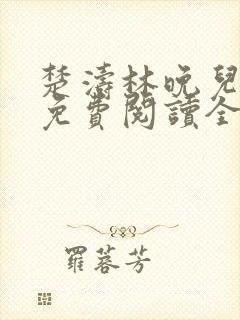 楚濤林晚兒
免費閱讀全
羅蓉芳